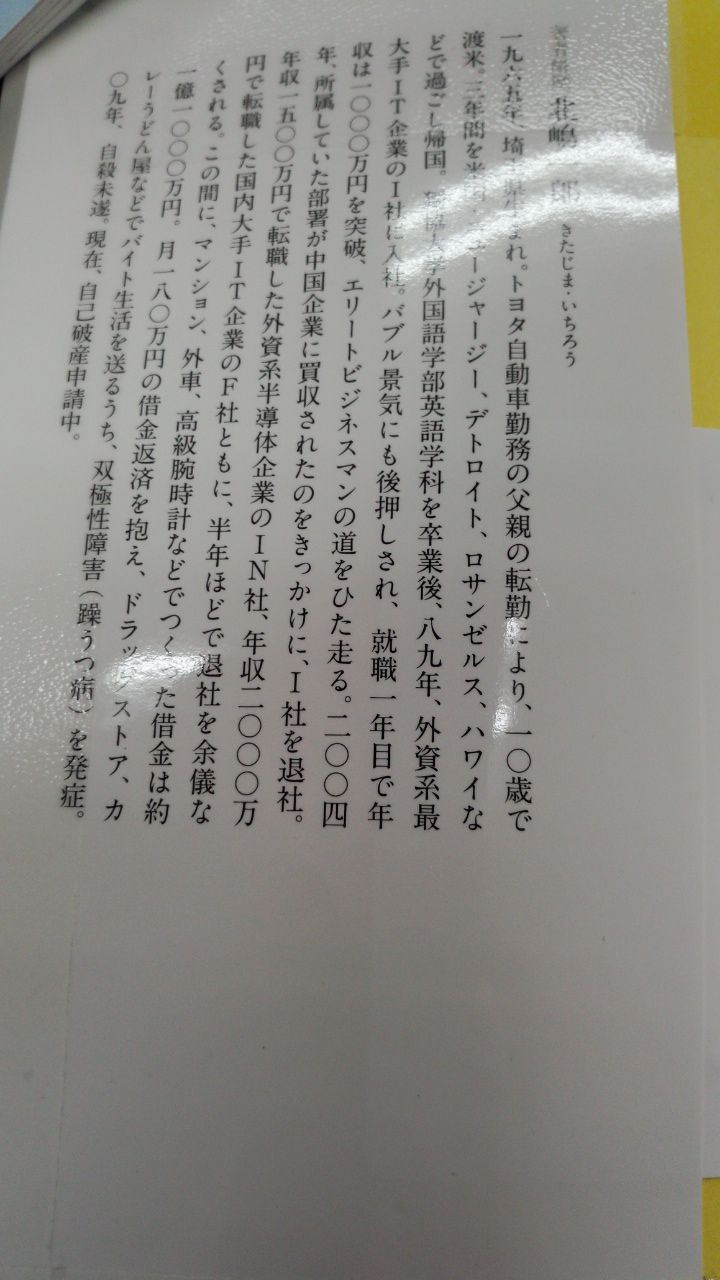 北嶋一郎 きたじま・いちろう
一九六五年、埼玉県生まれ。トヨタ自動車勤務の父親の転勤により、一〇歳で
渡米。三年間を米国ニュージャージー、デトロイト、ロサンゼルス、ハワイな
どで過ごし帰国。獨協大学外国語学部英語学科を卒業後、八九年、外資系最
大手IT企業のI社に入社。バブル景気にも後押しされ、就職一年目で年
収は一〇〇〇万円を突破、エリートビジネスマンの道をひた走る。二〇〇四
年、所属していた部署が中国企業に買収されたのをきっかけに、I社を退社。
年収一五〇〇万円で転職した外資系半導体企業のIN社、年収二〇〇〇万
円で転職した国内大手IT企業のF社ともに、半年ほどで退社を余儀な
くされる。この間に、マンション、外車、高級腕時計などでつくった借金は約
一億一〇〇〇万円。月一八〇万円の借金返済を抱え、ドラッグストア、カ
レーうどん屋などでバイト生活を送るうち、双極性障害（躁うつ病）を発症。
〇九年、自殺未遂。現在、自己破産申請中。